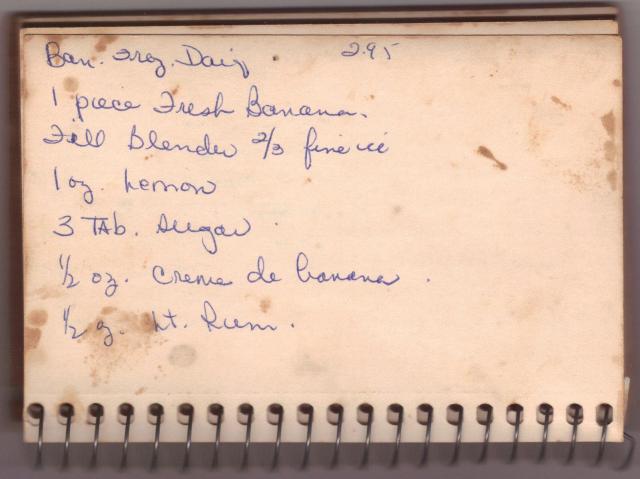 Ban. Frez. Daiq. 2.95
1 piece Fresh Banana.
Fill Blender 2/3 fine ice
1 oz. Lemon
3 TAb. Sugar
1/2 oz. Creme de banana.
1/2 oz. Lt. Rum.